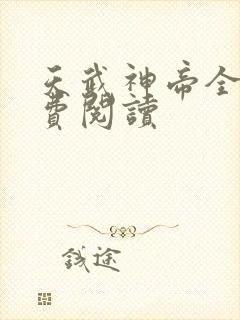 天武神帝全
費閱讀
錢途